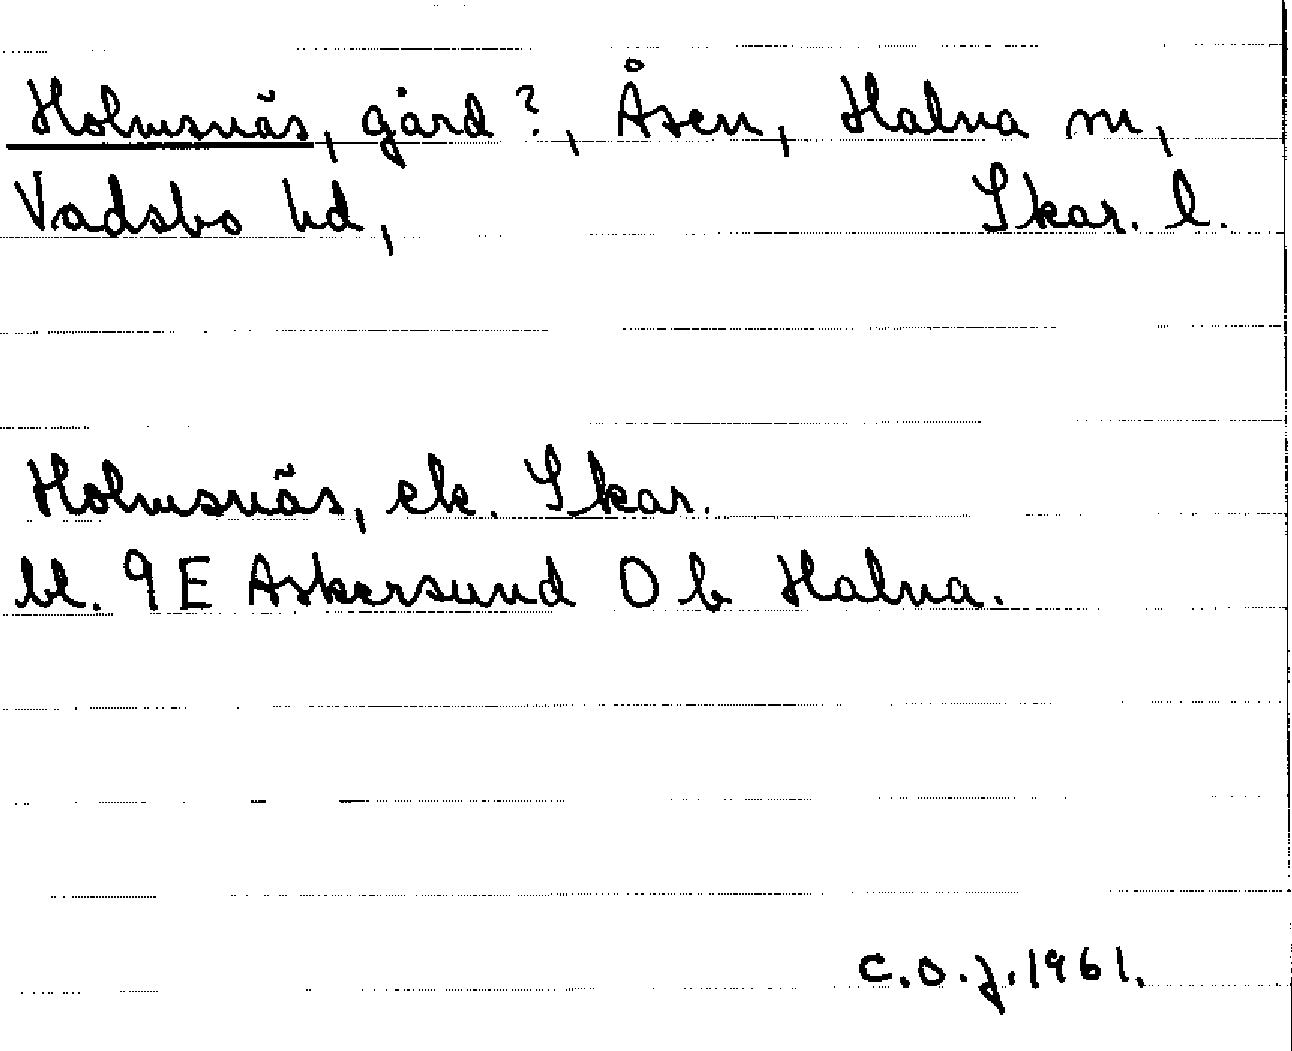 Holmsnäs, gård?, Åsen, Halna sn,
Vadsbo hd, Skar. l.
Holmsnäs, ek. Skar.
bl. 9E Askersund 0b Halna.
C.O.J. 1961.